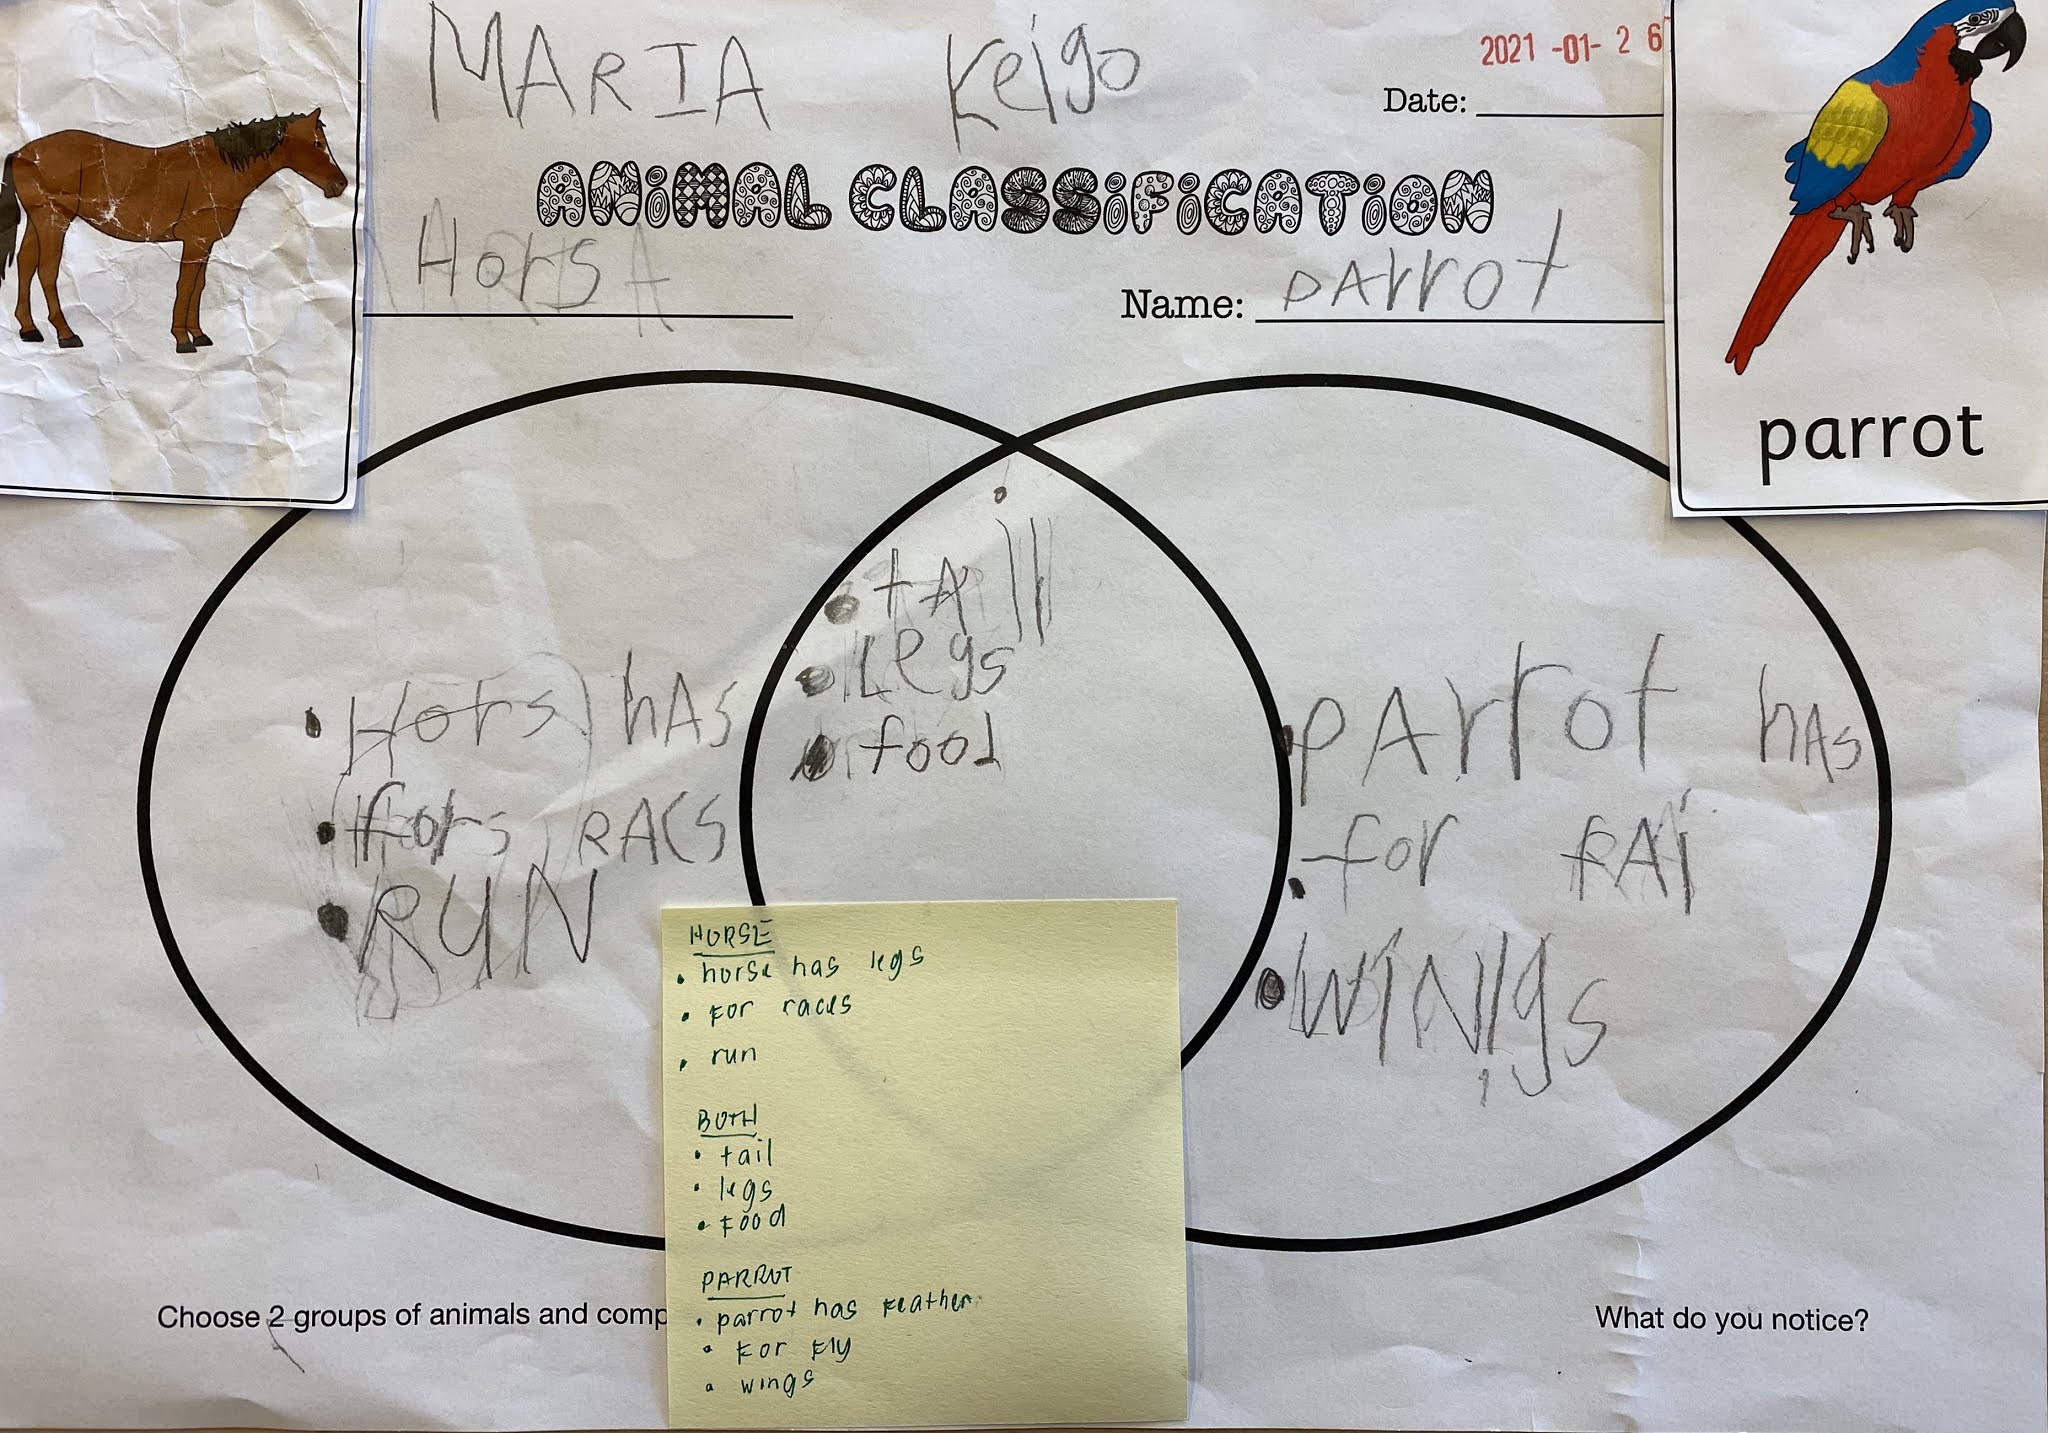 MARIA Keigo
2021 -01- 2 6
Date:
ANIMAL CLASSIFICATION
Hors
Name: pArrot
parrot
tAil
Legs
food
Hors hAs
fors RACS
RUN
pArrot hAs
for FAi
WiNgs
HORSE
• horse has legs
• for races
• run
BOTH
• tail
• legs
• food
PARROT
• parrot has feather
• for fly
• wings
Choose 2 groups of animals and comp
What do you notice?